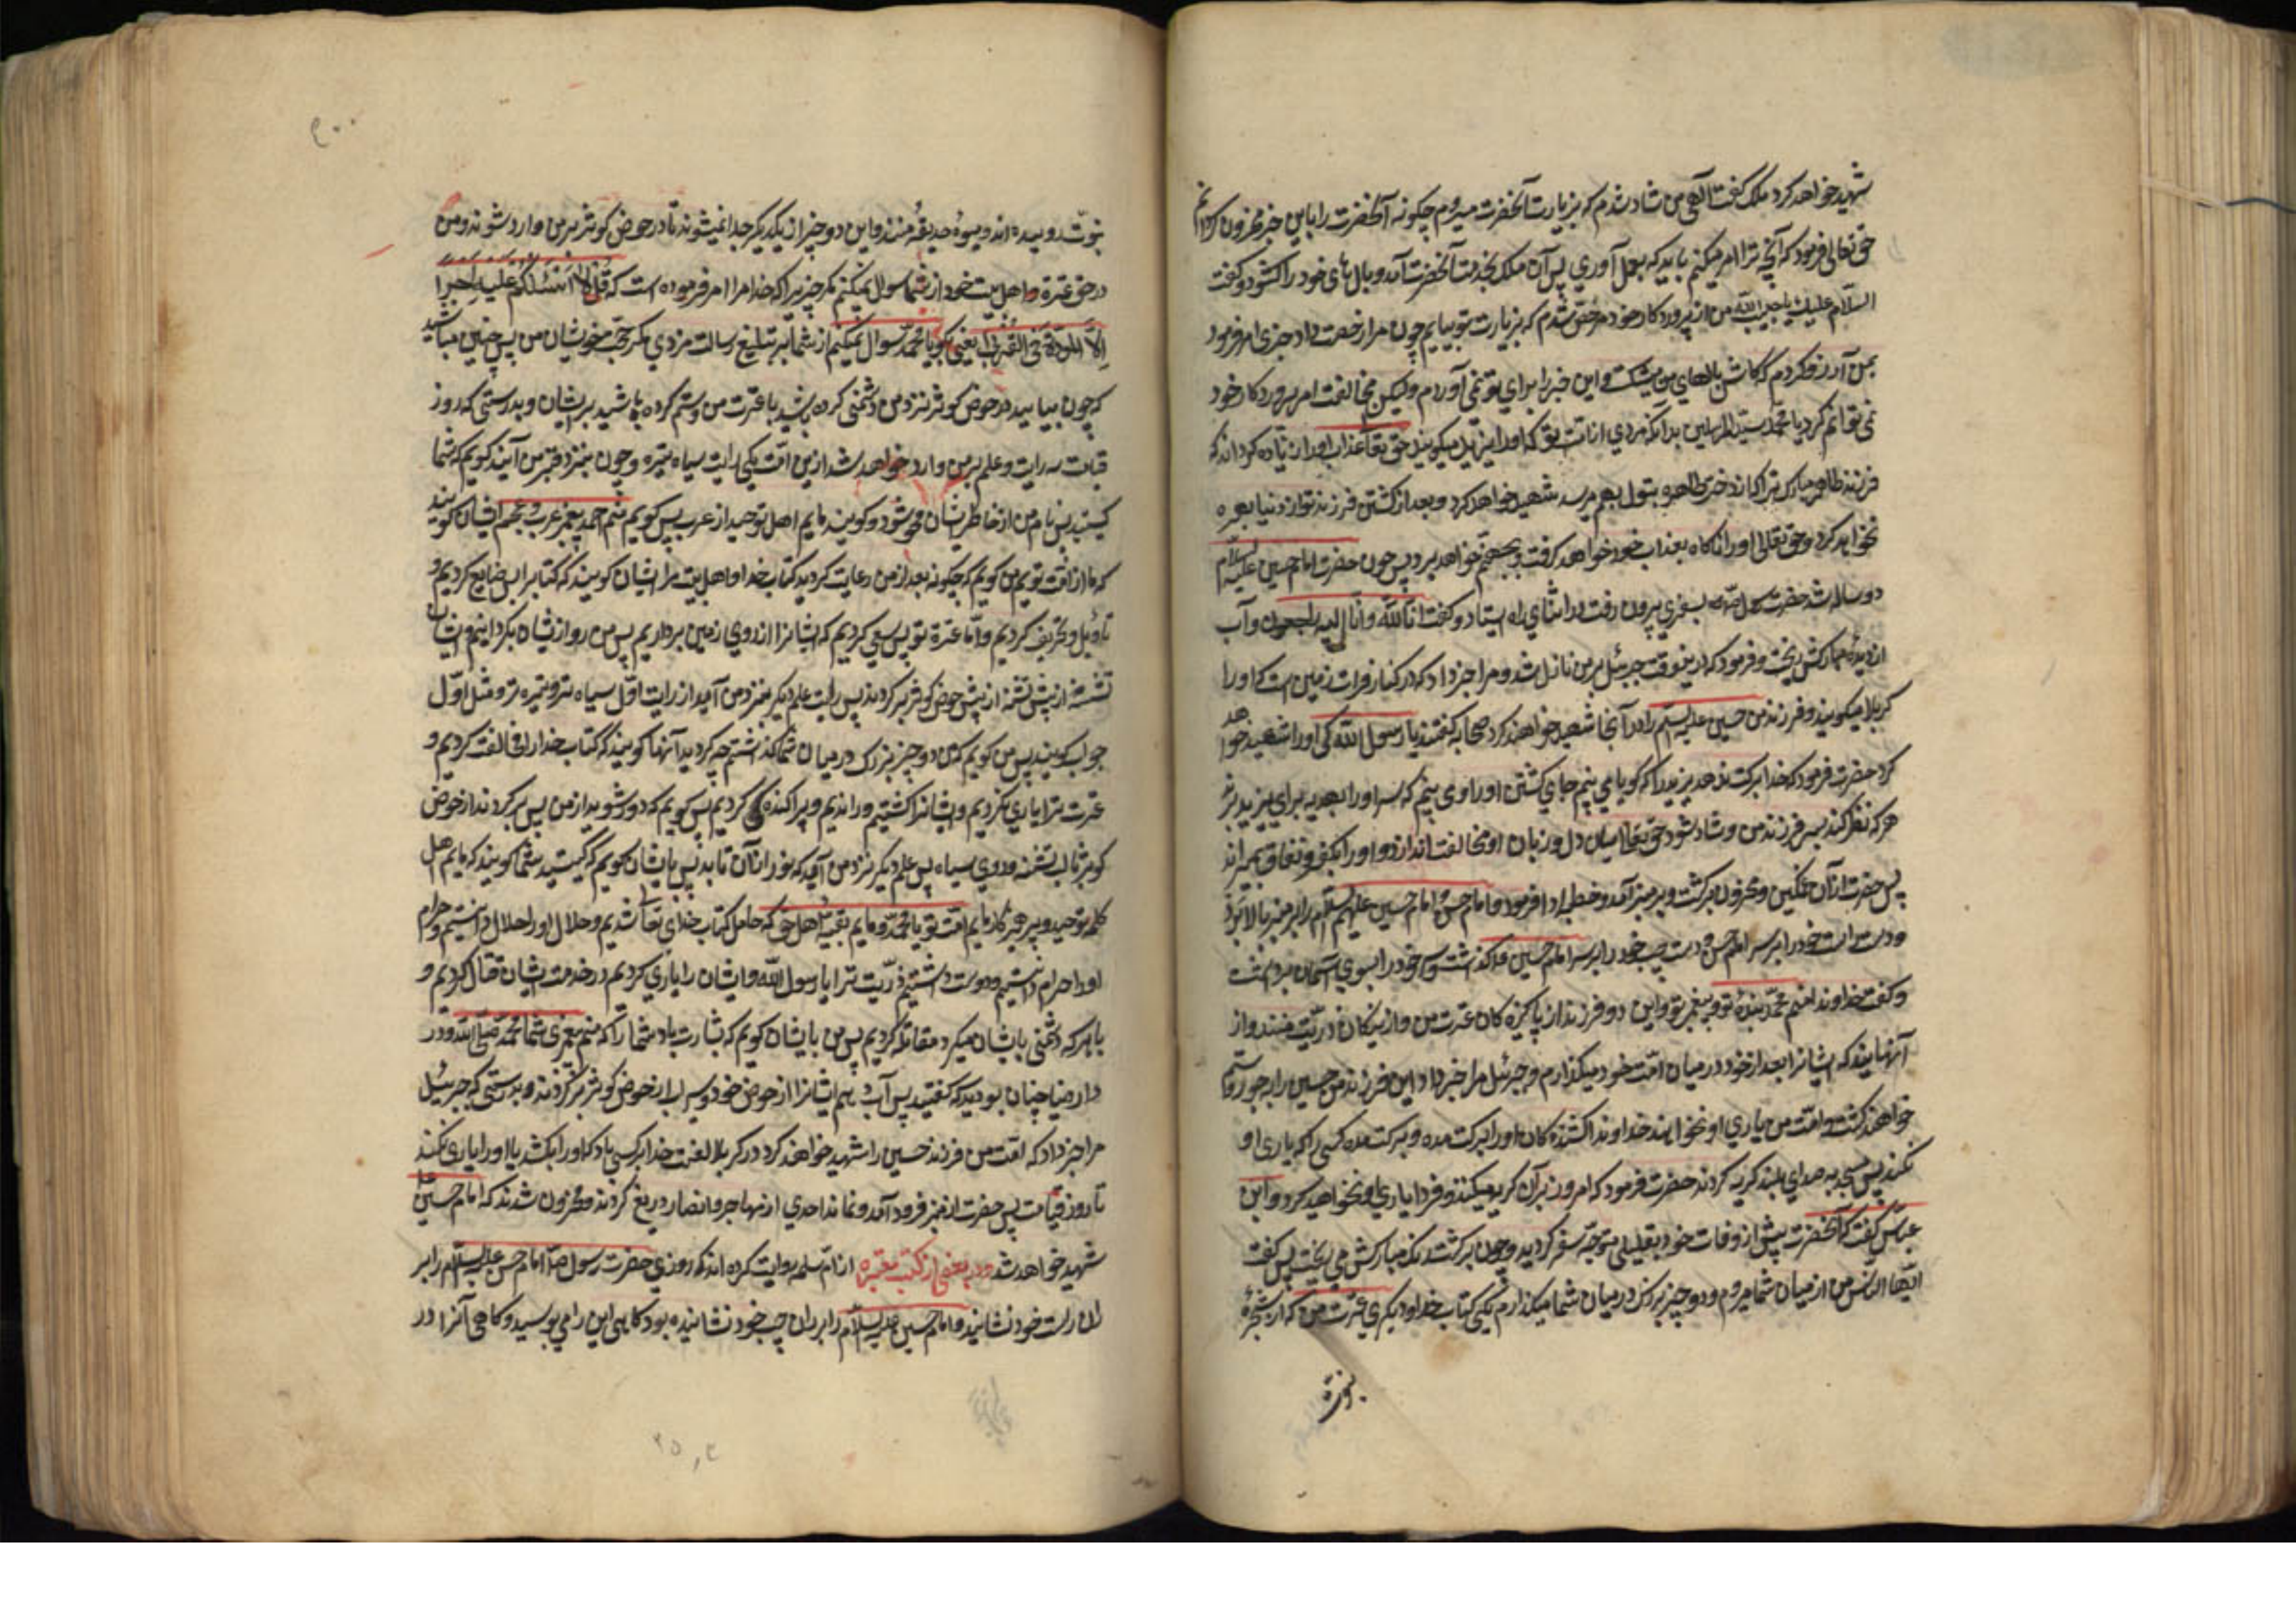 شهید خواهد کرد ملک گفت الهی من شاد شدم که بزیارت آنحضرت میروم چکونه آنحضرت را باین خبر محزون کردانم
حق تعالی فرمود که آنچه ترا امر میکنم باید که بعمل آوری پس آن ملک بخدمت آنحضرت آمد و بال های خود را کشود و کفت
السلام علیک یا حبیب الله من از پروردکار خود مرخص شدم که بزیارت تو بیایم چون مرا رخصت داد خبری امر فرمود
من آرزو کردم که کاش بالهای من میشکست و این خبر را برای تو نمی آوردم ولیکن مخالفت امر پروردکار خود
نمی توانم کرد یا محمد سید المرسلین بدانکه مردی از امت تو که اورا یزید میکویند حق تعا عذاب اورا زیاده کرداند که
فرزند طاهر مبارک ترا که از دختر طاهره بتول بهم رسد شهید خواهد کرد و بعد از کشتن فرزند تو از دنیا بهره
نخواهد کرد و حق تعالی اورا ناکاه بعذاب خود خواهد کرفت و بجهنم خواهد برد پس چون حضرت امام حسین علیه السلام
دو ساله شد حضرت رسول بسفری بیرون رفت در اثنای راه ایستاد و کفت انا لله و انا الیه راجعون و آب
از دیدهٔ مبارکش ریخت و فرمود که اینوقت جبرئیل بر من نازل شد و مرا خبر داد که در کنار فرات زمین است که اورا
کربلا میکویند و فرزند من حسین علیه السلم را در آنجا شهید خواهند کرد صحابه کفتند یا رسول الله کی اورا شهید خواهد
کرد حضرت فرمود که خدا برکت ندهد یزید را که کویا می بینم جای کشتن اورا و می بینم که سر اورا بهدیه برای یزید برند
هر که نظر کند بسر فرزند من و شاد شود حق تعا میان دل و زبان او مخالفت اندازد و اورا بکفر و نفاق بمیراند
پس حضرت از آن غمکین و محزون برکشت و بر منبر آمد و خطبه ادا فرمود و امام حسن و امام حسین علیهم السلام را بر منبر بالا برد
و دست راست خود را بر سر امام حسن و دست چپ خود را بر سر امام حسین کذاشت و سر خود را بسوی آسمان برداشت
و کفت خداوندا منم محمد بندهٔ تو و پیغمبر تو و این دو فرزند از پاکیزه کان عترت من و از نیکان ذریت منند و از
آنهایند که ایشانرا بعد از خود در میان امت خود میکذارم و جبرئیل مرا خبر داد این فرزند من حسین را بجور و ستم
خواهند کشت و امت من یاری او نخواهند خداوندا کشنده کان اورا برکت مده و برکت مده کسی را که یاری او
نکند پس مسجد بصدای بلند کریه کردند حضرت فرمود که امروز بر آن کریه میکنند و فردا یاری او نخواهید کرد و ابن
عباس کفت که آنحضرت پیش از وفات خود بقلیلی متوجه سفر کردید و چون برکشت رنک مبارکش می ریخت پس کفت
ایها الناس من از میان شما میروم و دو چیز بزرک در میان شما میکذارم یکی کتاب خدا و دیکری عترت من که از شجرهٔ
نبوت روییده اند و میوهٔ حدیقهٔ منند و این دو چیز از یکدیکر جدا نمیشوند تا در حوض کوثر بر من وارد شوند و من
در حق عترة و اهل بیت خود از شما سوال نمیکنم مکر چیزیرا که خدا مرا امر فرموده است که قل لا اسئلکم علیه اجرا
الا المودة فی القربی یعنی بکو یا محمد سوال نمیکنم از شما بر تبلیغ رسالت مزدی مکر محبت خویشان من پس چنین مباشید
که چون بیایید در حوض کوثر نزد من دشمنی کرده باشید با عترت من و ستم کرده باشید بر یشان و بدرستی که روز
قیامت سه رایت و علم بر من وارد خواهد شد از این امت یکی رایت سیاه تیره و چون بنزد من آیند کویم که شما
کیستید پس نام من از خاطر یشان محو شود و کویند مایم اهل توحید از عرب پس کویم منم احمد پیغمبر عرب و عجم ایشان کویند
که ما از امت توییم من کویم که چکونه بعد از من رعایت کردید کتاب خدا و اهل بیت مرا ایشان کویند که کتاب را پس ضایع کردیم و
تأویل و تحریف کردیم و اما عترة تو پس سعی کردیم که ایشانرا از روی زمین برداریم پس من رو از یشان بکردانم و یشان
تشنه از پیش حوض کوثر برکردند پس رایت علم دیکر بنزد من آید از رایت اول سیاه تر و تیره تر و مثل اول
جواب کویند پس من کویم که من دو چیز بزرک در میان شما کذاشتم چه کردید آنها کویند که کتاب خدا را مخالفت کردیم و
عترت ترا یاری نکردیم و یشانرا کشتیم و راندیم و پراکنده کردیم پس کویم که دور شوید از من پس برکردند از حوض
کوثر با لب تشنه و روی سیاه پس علم دیکر نزد من آید که نور از آن تابد پس بایشان کویم که کیستید شما کویند که مایم اهل
کلمه توحید و پرهیزکار مایم امت تو یا محمد و مایم بقیهٔ اهل حق که حامل کتاب خدای تعا شدیم و حلال اورا حلال دانستیم و حرام
اورا حرام دانستیم و دوست داشتیم ذریت ترا یا رسول الله و یشان را یاری کردیم در خدمت یشان قتال کردیم و
با هر که دشمنی با یشان میکرد مقاتله کردیم پس من بایشان کویم که بشارت باد شما را که منم پیغمبر شما محمد و در
دار دنیا چنان بودید که کفتید پس آب دهم ایشانرا از حوض خود و سیراب از حوض کوثر برکردند و بدرستی که جبرئیل
مرا خبر داد که امت من فرزند حسین را شهید خواهند کرد در کربلا لعنت خدا بر کسی باد که اورا بکشد یا اورا یاری نکند
تا روز قیامت پس حضرت از منبر فرود آمد و نماند احدی از مهاجر و انصار دریغ کردند و محزون شدند که امام حسین
شهید خواهد شد و در بعضی از کتب معتبره از ام سلمه روایت کرده اند که روزی حضرت رسول امام حسن علیه السلام را بر
ران راست خود نشانید و امام حسین علیه السلام را بر ران چپ خود نشانیده بود کاهی این را می بوسید و کاهی آنرا در